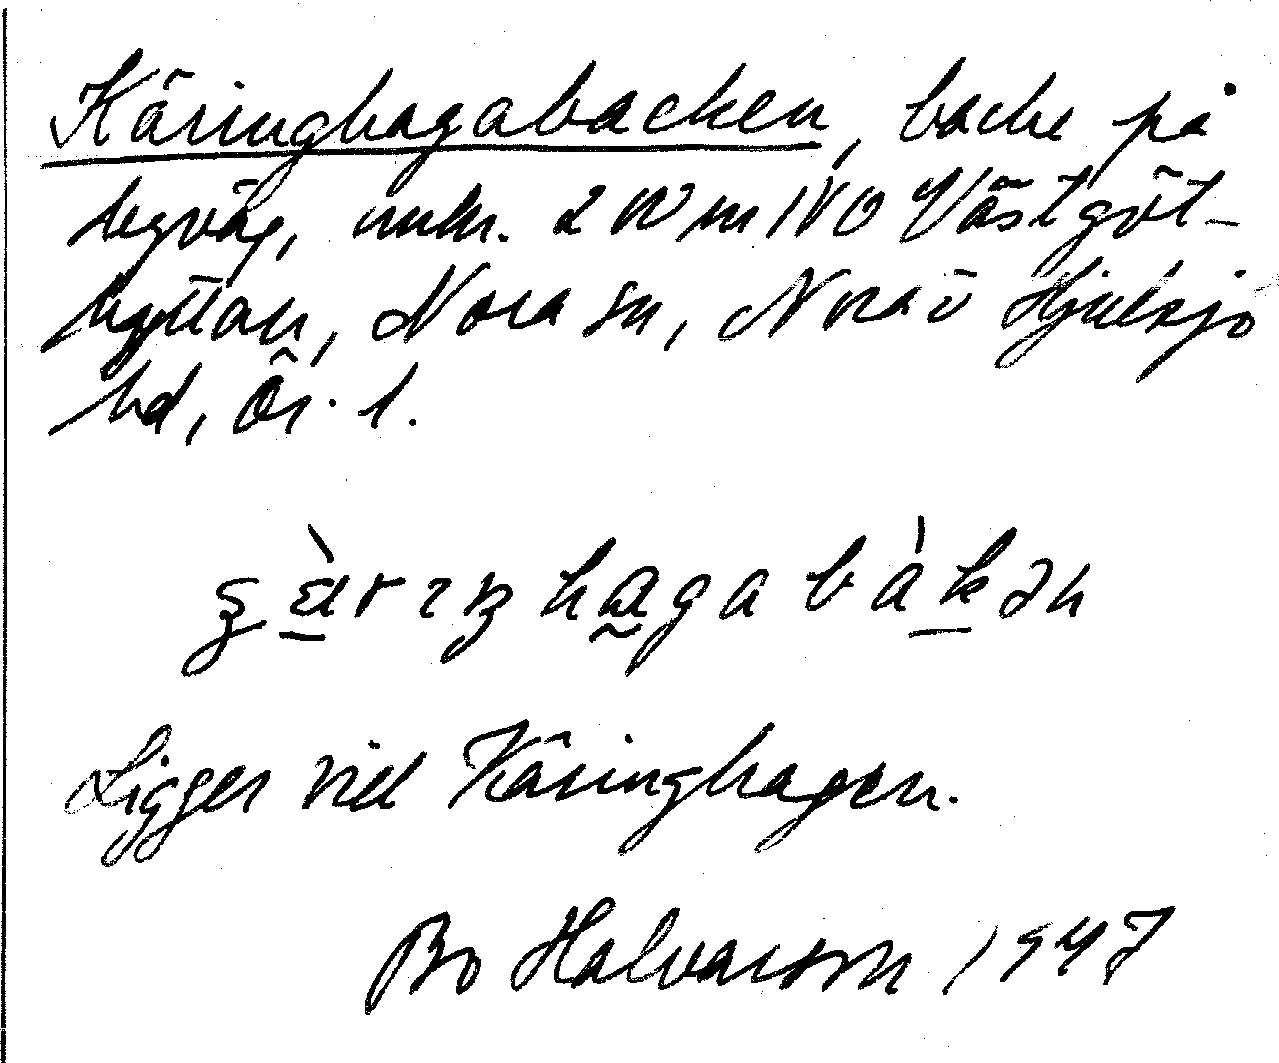 Käringhagabacken, backe på
byväg, omkr. 2 km NO Västgöt-
hyttan, Nora sn, Nora o Hjulsjö
hd, Ör. l.
Ligger vid Käringhagen.
Bo Halvarson 1947